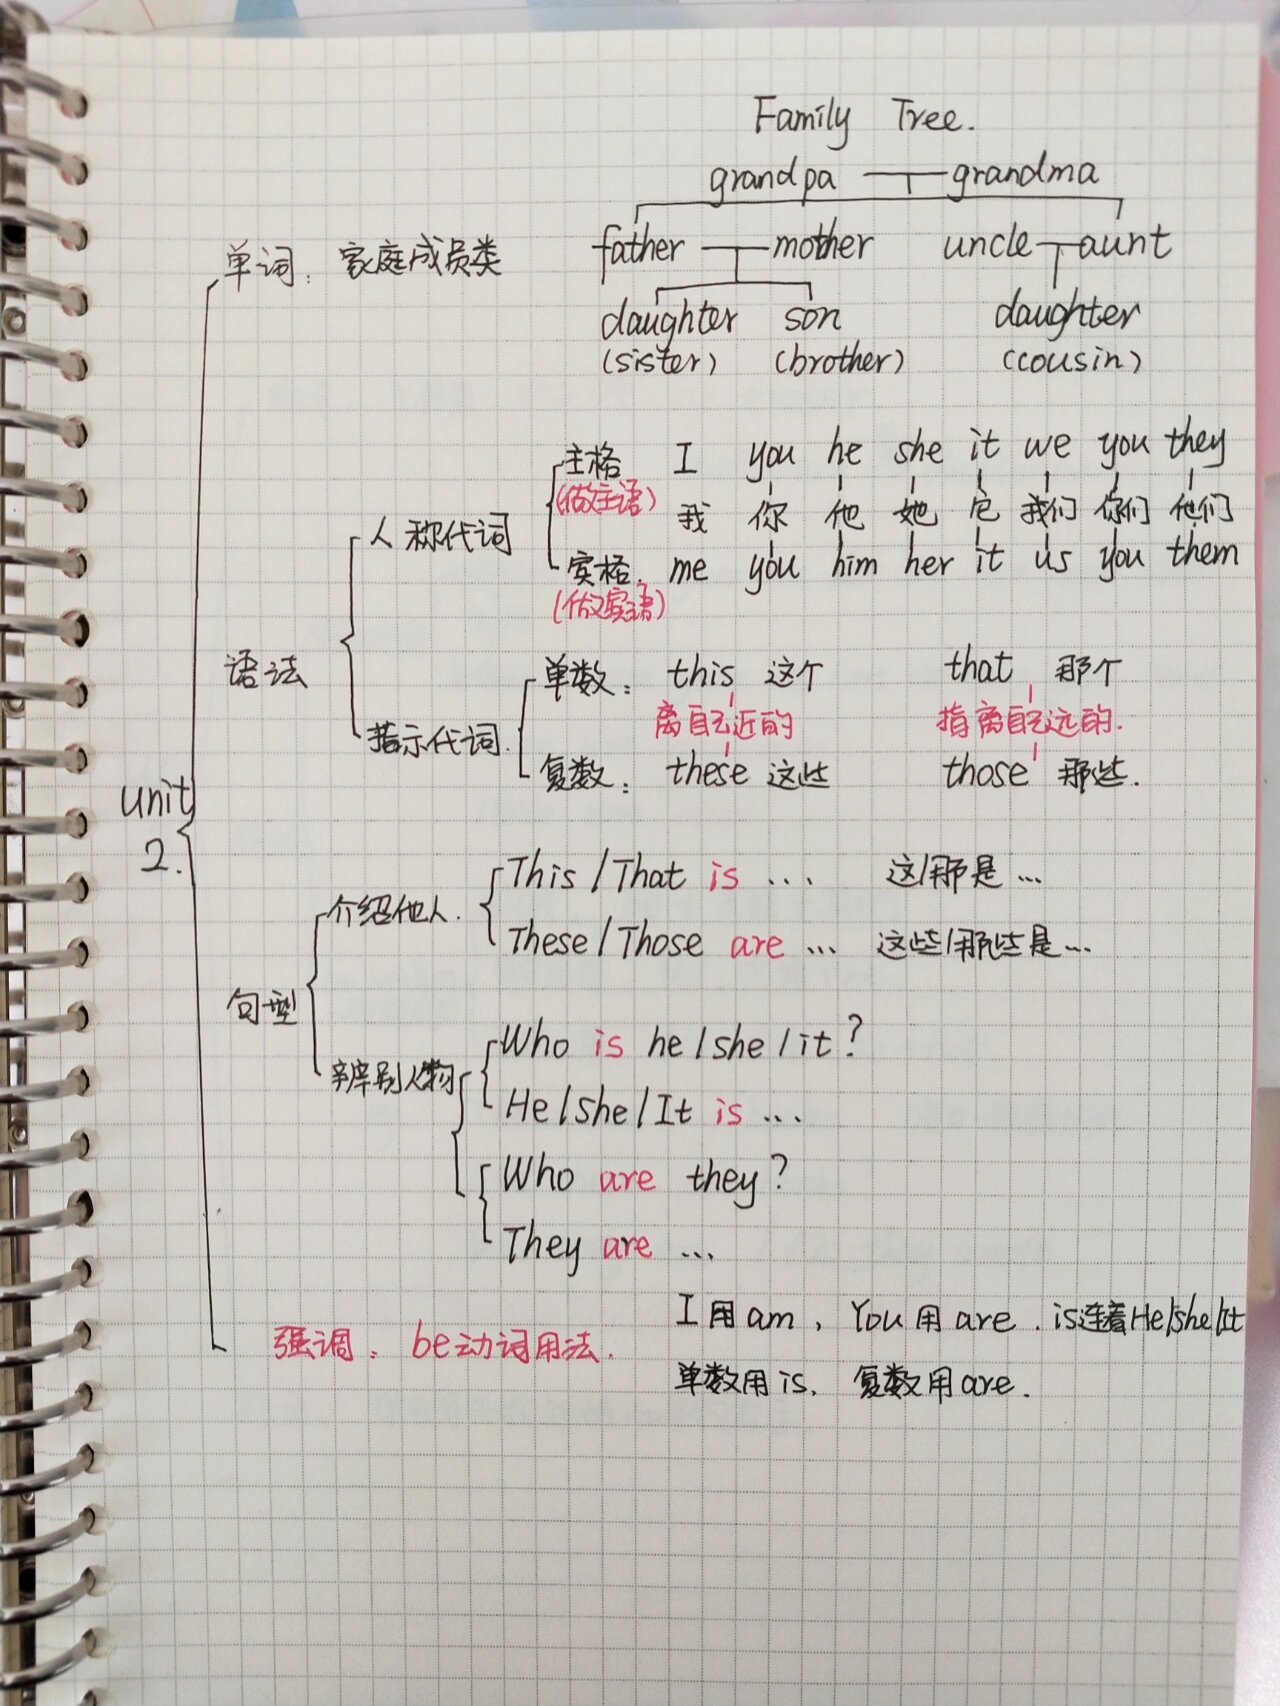 Family Tree.
grandpa grandma
单词：家庭成员类 father mother uncle aunt
daughter son daughter
(sister) (brother) (cousin)
主格 I you he she it we you they
(做主语) 我 你 他 她 它 我们 你们 他们
人称代词
宾格. me you him her it us you them
(做宾语)
语法
单数： this 这个 that 那个
离自己近的 指离自己远的.
指示代词.
复数： these 这些 those 那些.
unit
2.
This / That is ... 这/那是...
介绍他人.
These / Those are ... 这些/那些是...
句型
Who is he / she / it?
辨别人物
He / She / It is ...
Who are they?
They are ...
I 用 am, You 用 are. is连着He/She/It
强调： be动词用法.
单数用 is, 复数用 are.